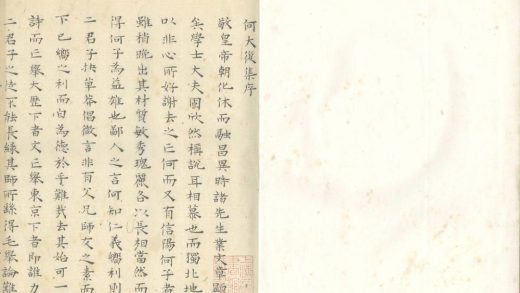 何大復集序
敬皇帝朝化休而融昌異時諸先生業文章顯
矣學士大夫固欣然稱說耳相慕也而獨北地
以非心所好謝去之亡何而又有信陽何子者
雖稍晚出其材質敏秀瑰麗各以長相當然而
得何子為益雄也鄙人之言何知仁義嚮利則
二君子抉草莽倡微言非有父兄師友之素而
下已嚮之利而自為德於乎難哉去其始可一
詩而亡舉大歷下者文亡舉東京下者即誰力
二君子之徒不能長緣其師所繇得毛舉論難